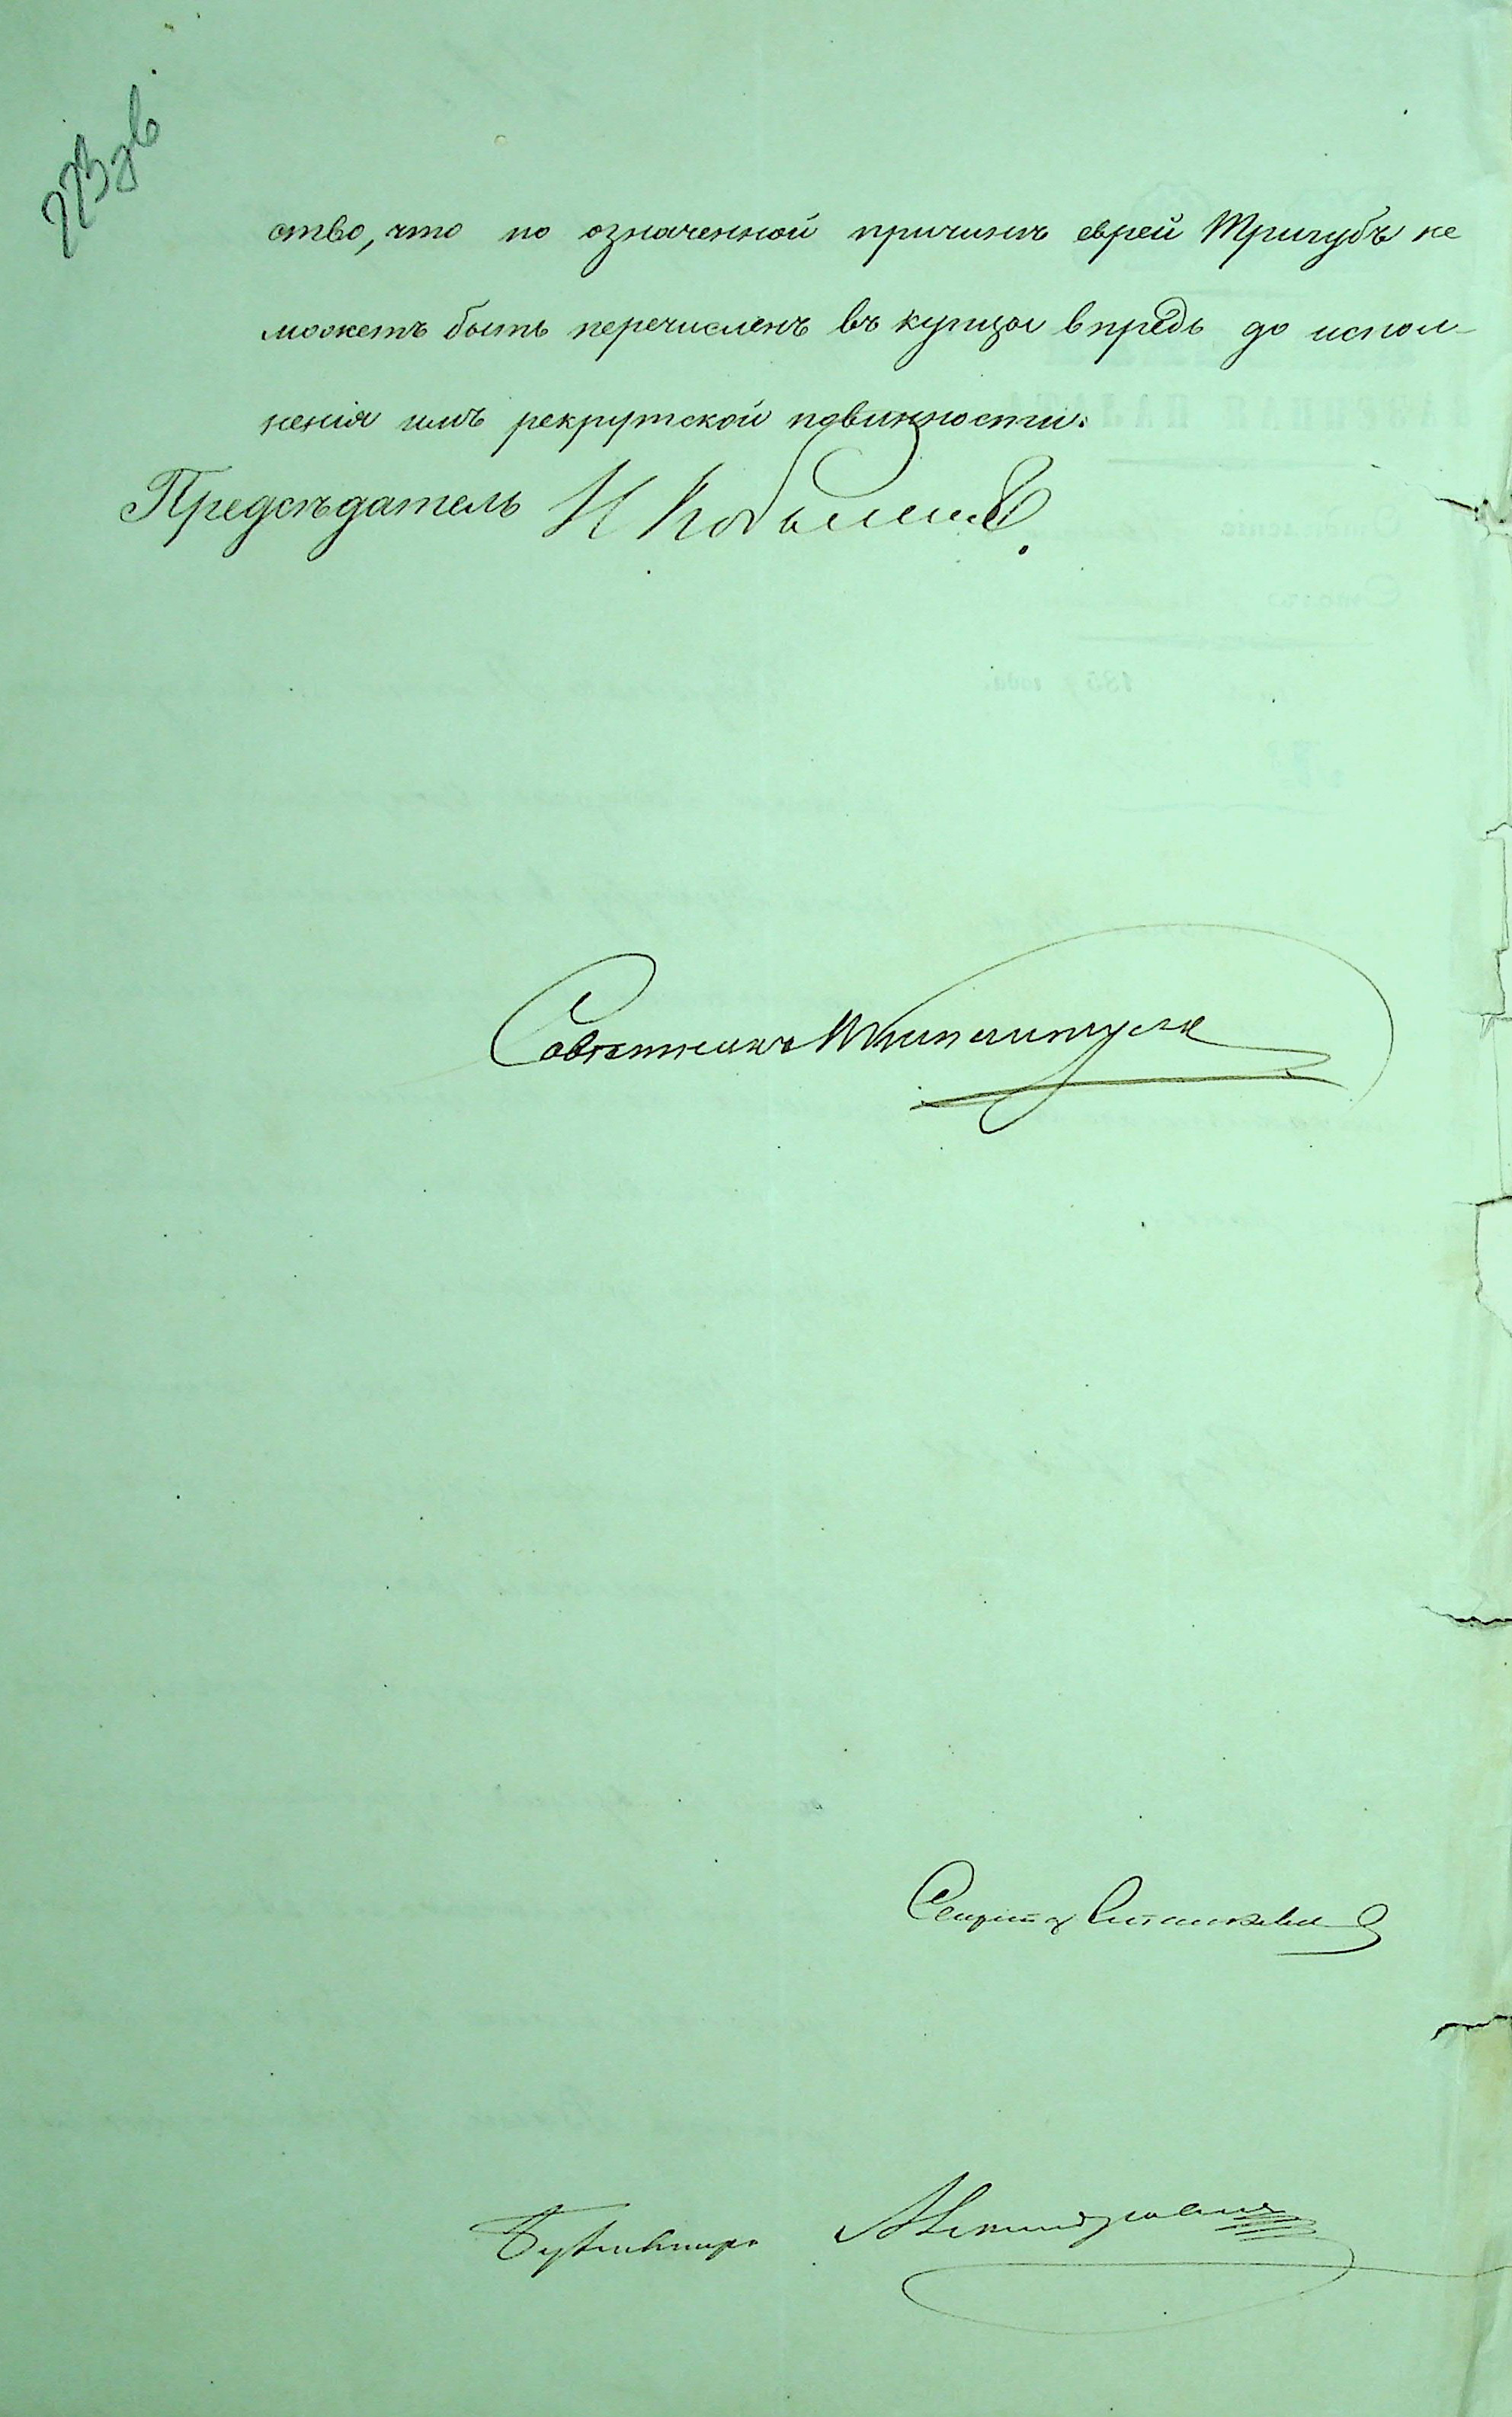 223 зв
ство, что по означенной причинѣ еврей Тригубъ не
можетъ быть перечисленъ въ купцы впредь до испол-
ненія имъ рекрутской повинности.
Предсѣдатель
Совѣтникъ
Секретарь
Бухгалтеръ